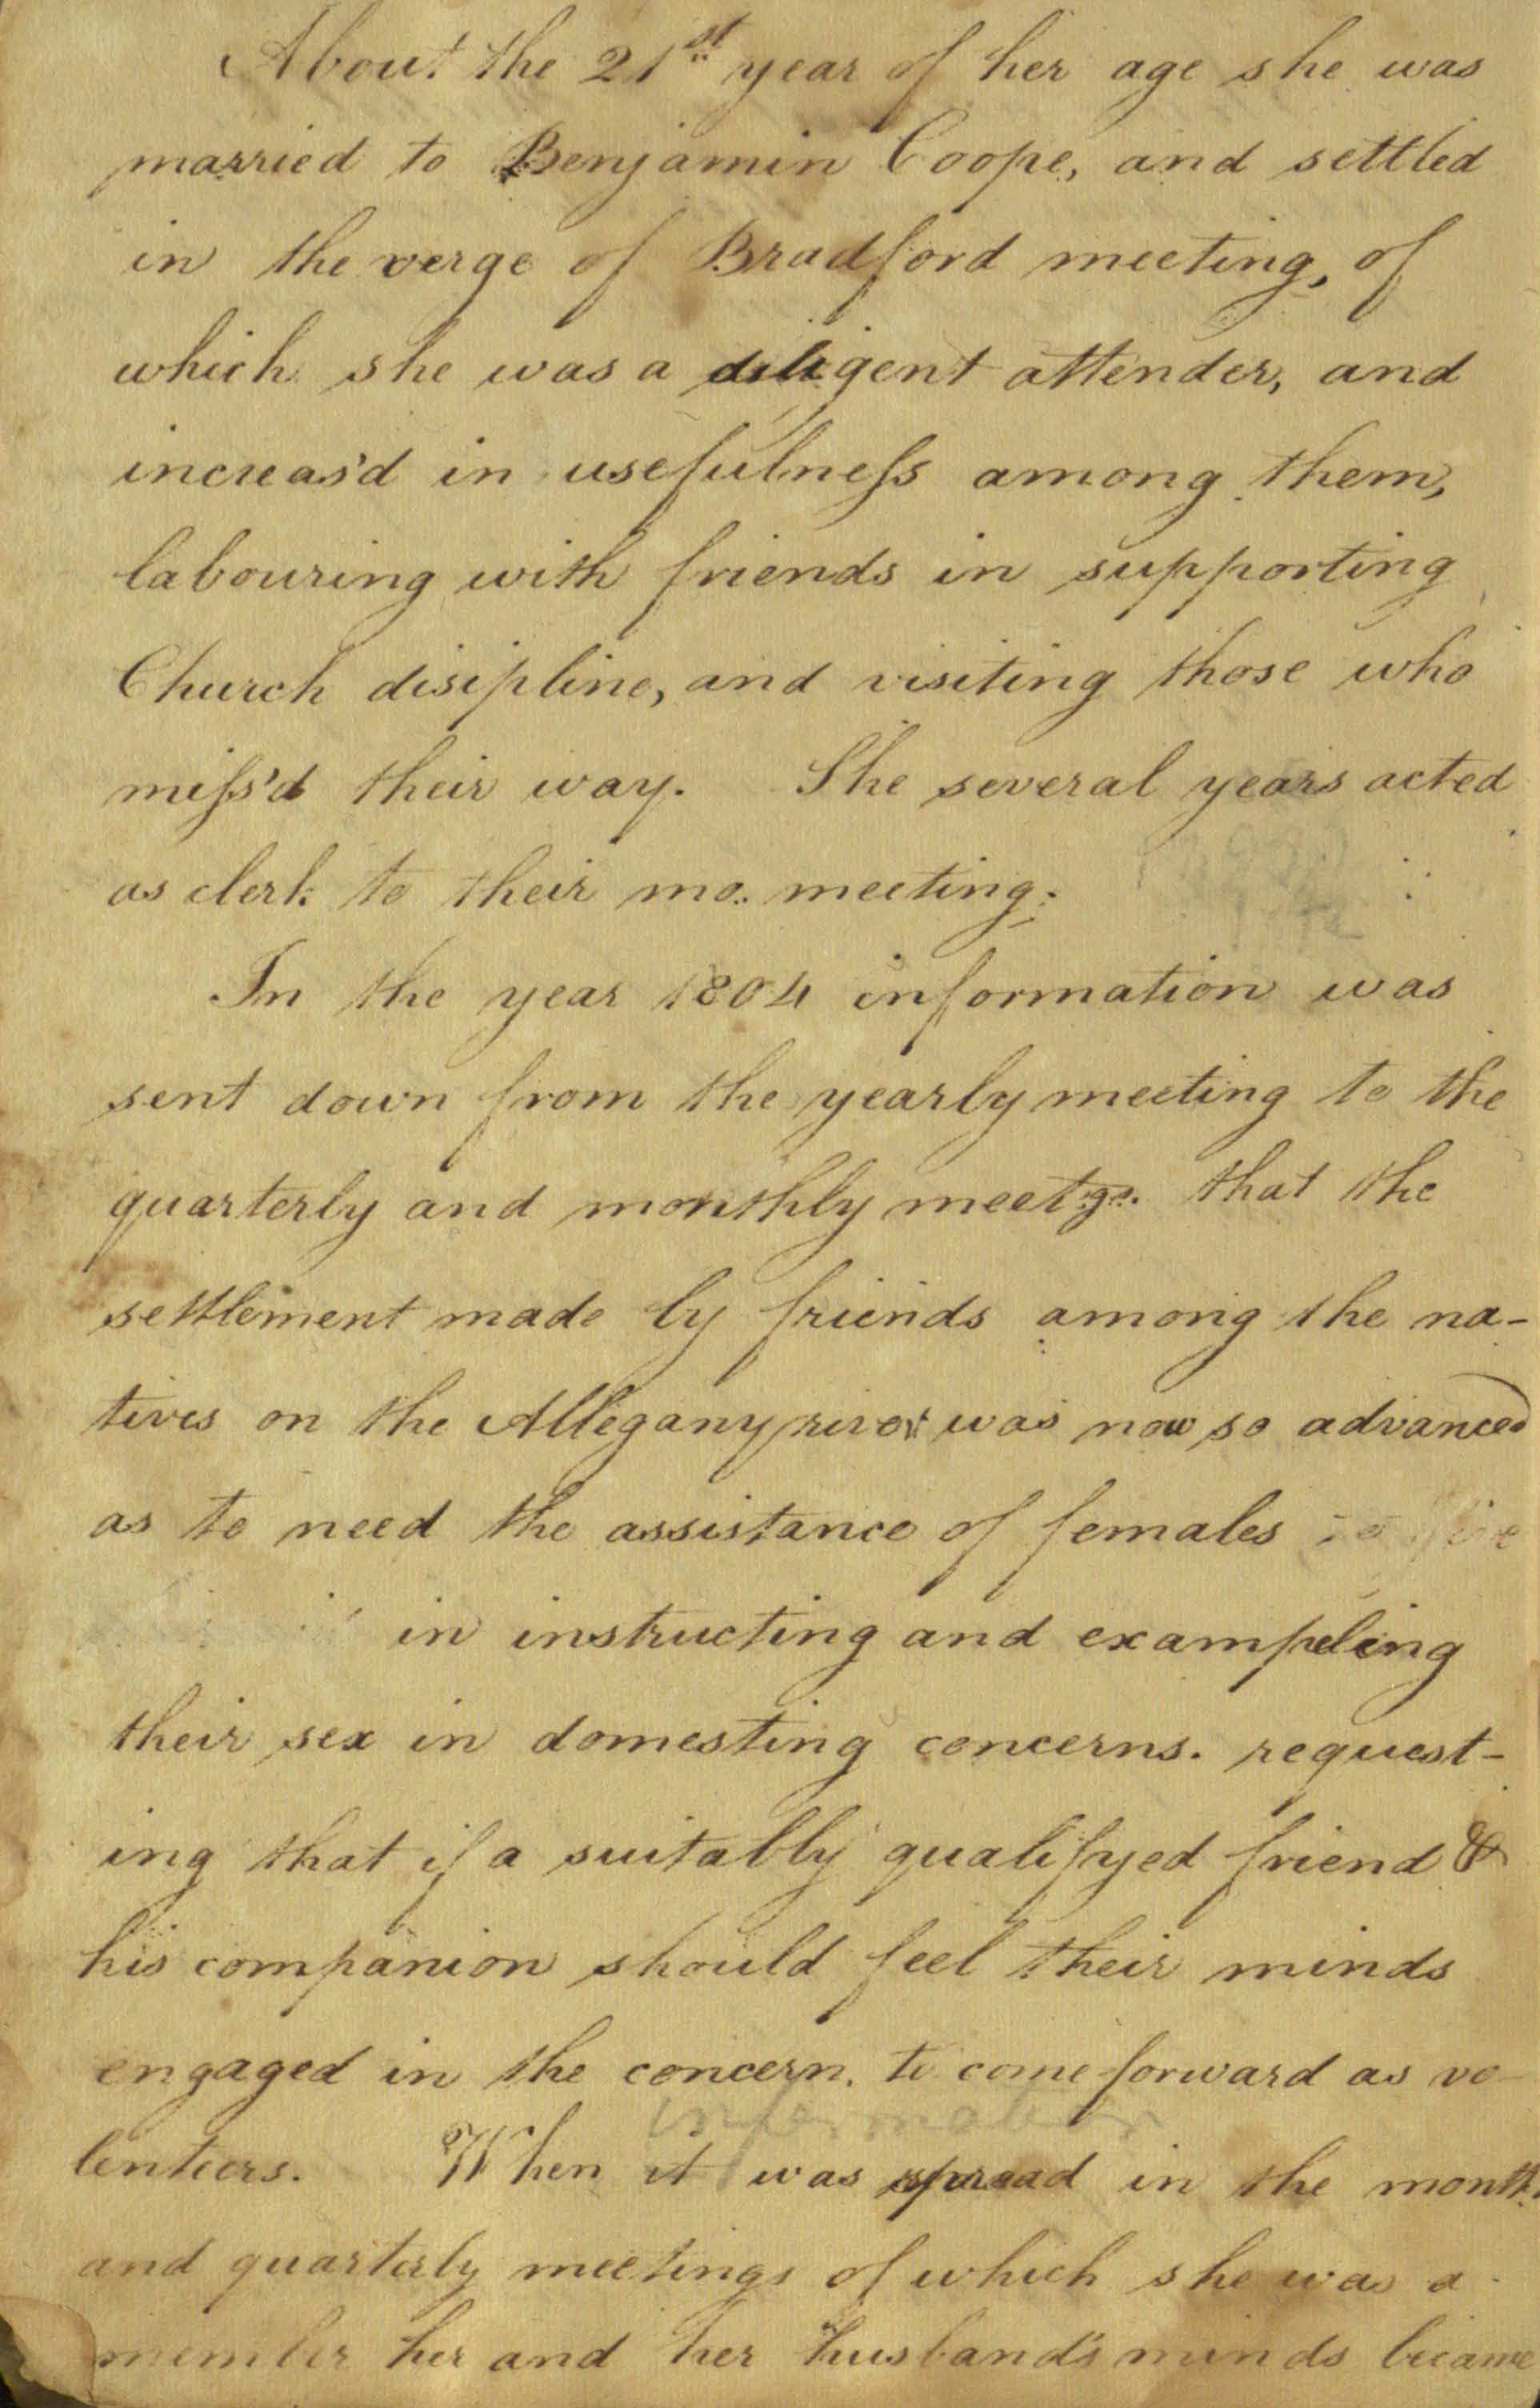 About the 21st year of her age she was
married to Benjamin Coope, and settled
in the verge of Bradford meeting, of
which she was a diligent attender, and
increas'd in usefulneſs among them,
labouring with friends in supporting
Church disipline, and visiting those who
miſs'd their way. She several years acted
as clerk to their mo. meeting.
In the year 1804 information was
sent down from the yearly meeting to the
quarterly and monthly meetgs. that the
settlement made by friends among the na-
tives on the Allegany river was now so advanced
as to need the assistance of females
in instructing and exampeling
their sex in domesting concerns. request-
ing that if a suitably qualifyed friend &
his companion should feel their minds
engaged in the concern. to come forward as vo-
lenteers. When it was spread in the month.
information
and quarterly meetings of which she was a
member her and her husband's minds became